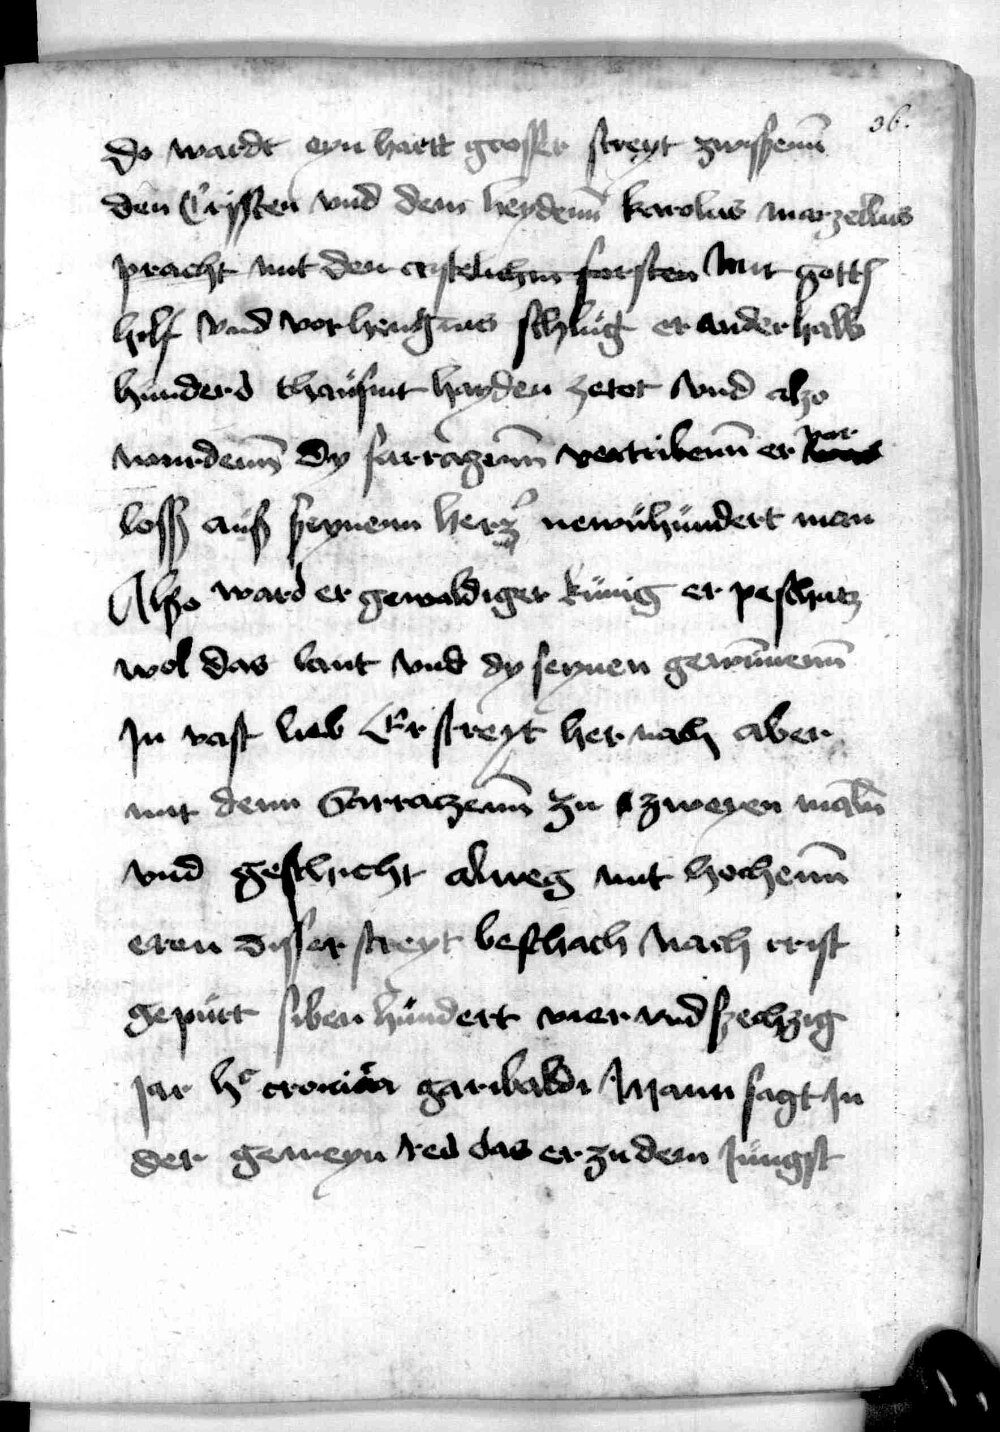 36.
do wardt eyn hartt grosser streyt zwischenn
den Cristen vnd dem heydenn karolus marzellus
pracht mit den cristelichen forsten Mit gotts
hilf vnd vorhengnus schlug er anderhalb
hunderd thausint hayden zetot vnd also
wurdenn dy sarrazenn vertribenn er vor
loss auß seynem herz newnhundert man
Also ward er gewaldiger kunig er peschutz
wol das lant vnd dy seynen gewunnenn
In vast lieb Er streyt her nach aber
mit denn Sarrazenn zu zweyen maln
vnd gesthicht alweg mit hochenn
eren disser streyt beschach Nach crist
gepurt siben hundert vier vnd sechzig
Jar hc cronica garibaldi Mann sagt In
der gemeyn red das er zu dem Jungst